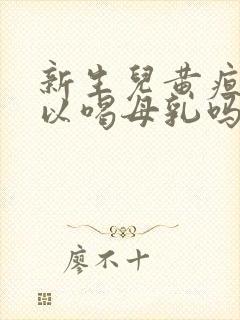 新生兒黄疸
以喝母乳吗
廖不十